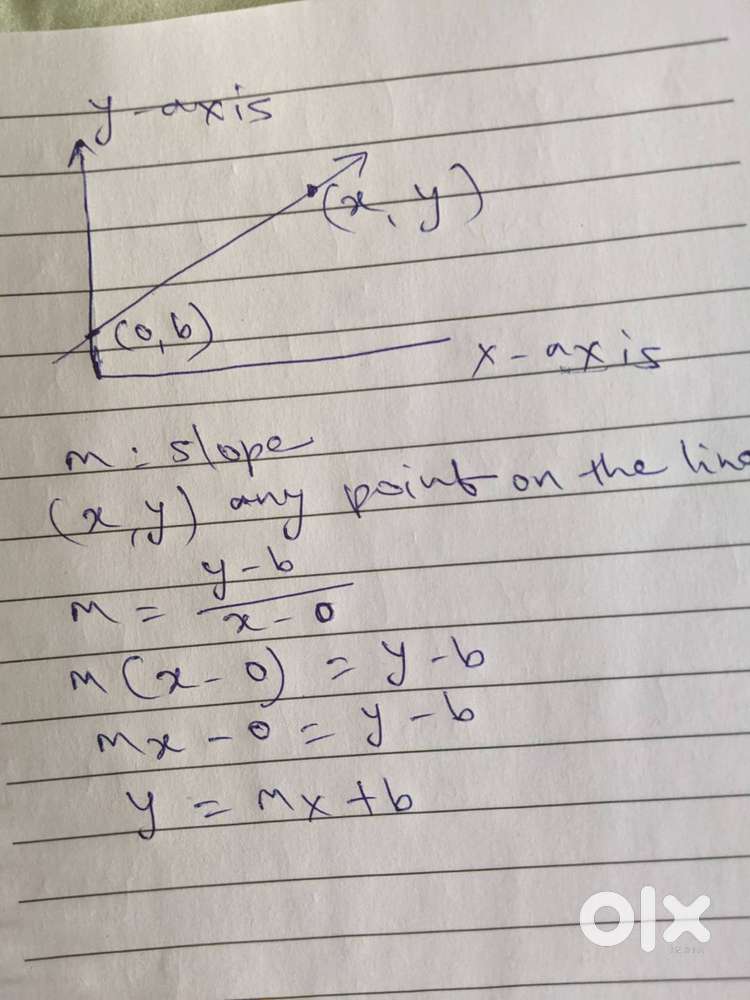 y-axis
(x, y)
(0, b)
x-axis
m: slope
(x, y) any point on the line
m = y-b / x-0
m(x-0) = y-b
mx-0 = y-b
y = mx+b
olx